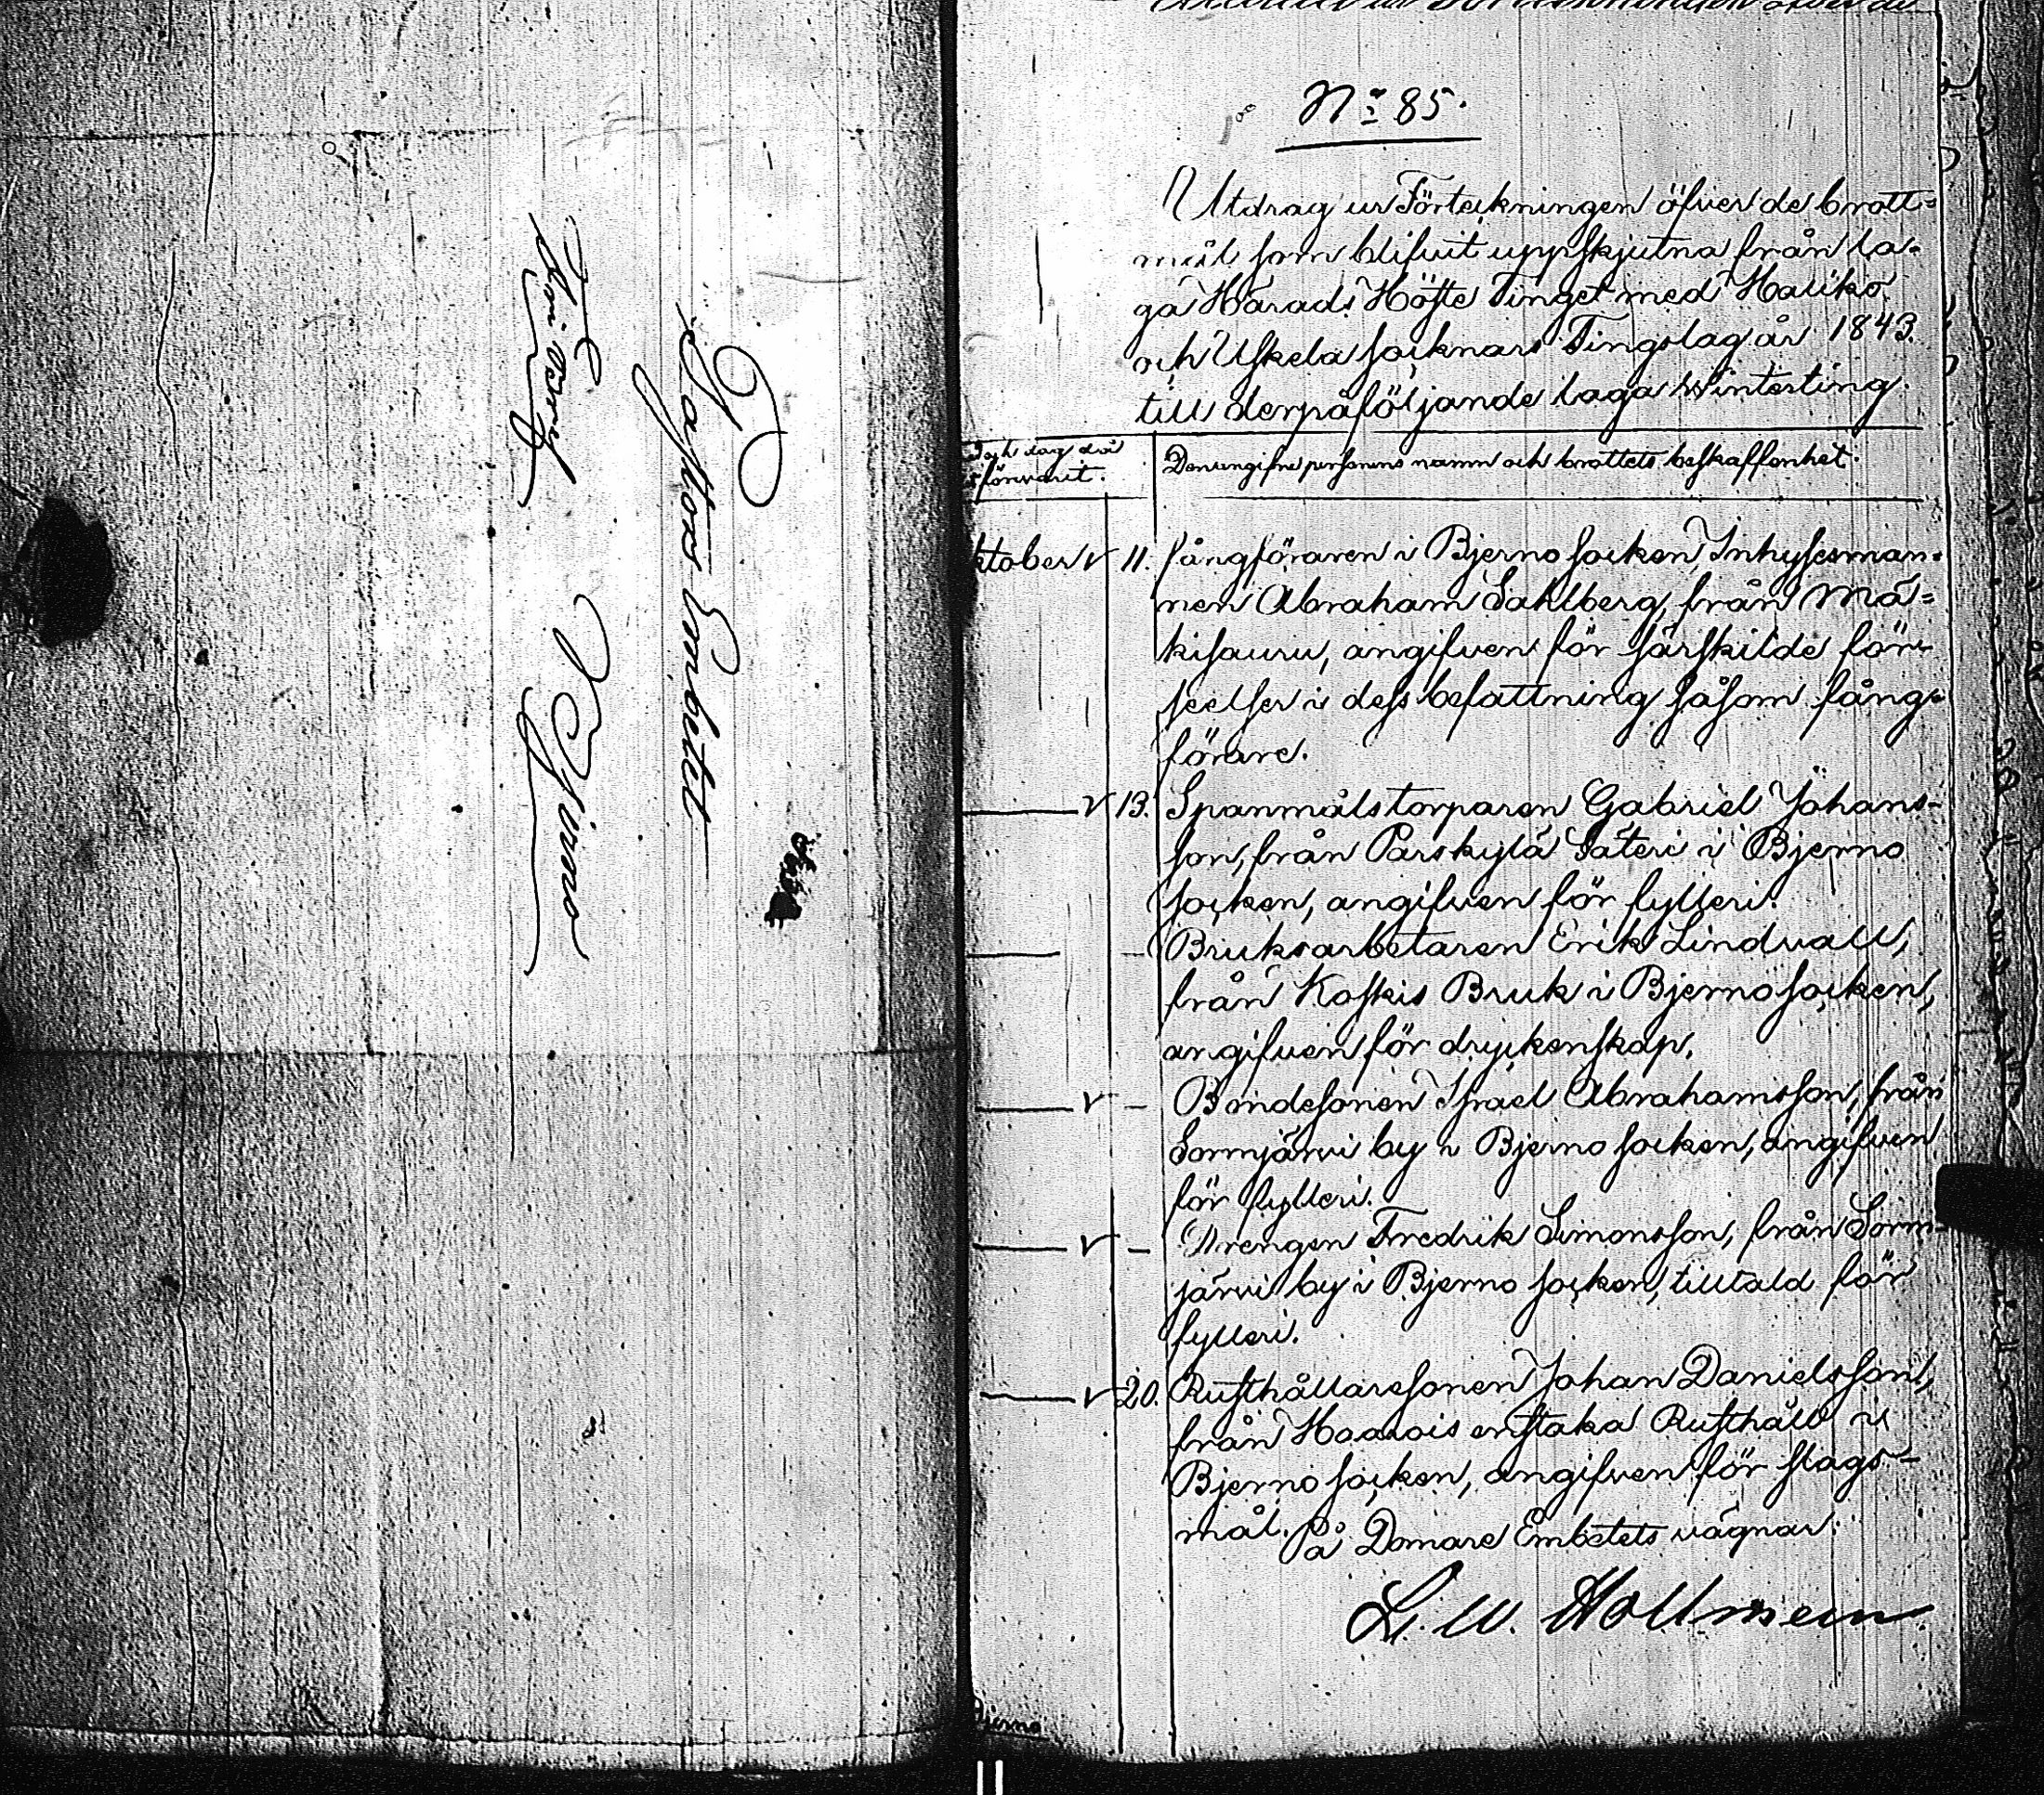 Pastors Embetet
Bjerno
No 85.
Utdrag ur Förteckningen öfver de brott=
mål som blifvit uppskjutna från la=
ga Härads Höste Tinget med Haliko
och Uskela socknars Tingslag år 1843.
till derpåföljande laga Winterting.
och dag då
förevarit.
Den angifne personens namn och brottets beskaffenhet.
ktober 11. fångföraren i Bjerno socken, Inhysesman=
nen Abraham Sahlberg, från Mä=
kisauru, angifven för särskilde för=
seelser i dess befattning såsom fång=
förare.
13. Spanmålstorparen Gabriel Johans-
son, från Pärskylä Säteri i Bjerno
socken, angifven för fylleri.
— Bruksarbetaren Erik Lindvall,
från Koskis Bruk i Bjerno socken,
angifven för dryckenskap.
— Bondesonen Israel Abrahamsson, från
Sormjärvi by i Bjerno socken, angifven
för fylleri.
— Drengen Fredrik Simonsson, från Sorm=
järvi by i Bjerno socken, tilltald för
fylleri.
20. Rusthållaresonen Johan Danielsson,
från enstaka Rusthåll i
Bjerno socken, angifven för slags-
mål.
På Domare Embetets vägnar:
L. W.
Bjerno